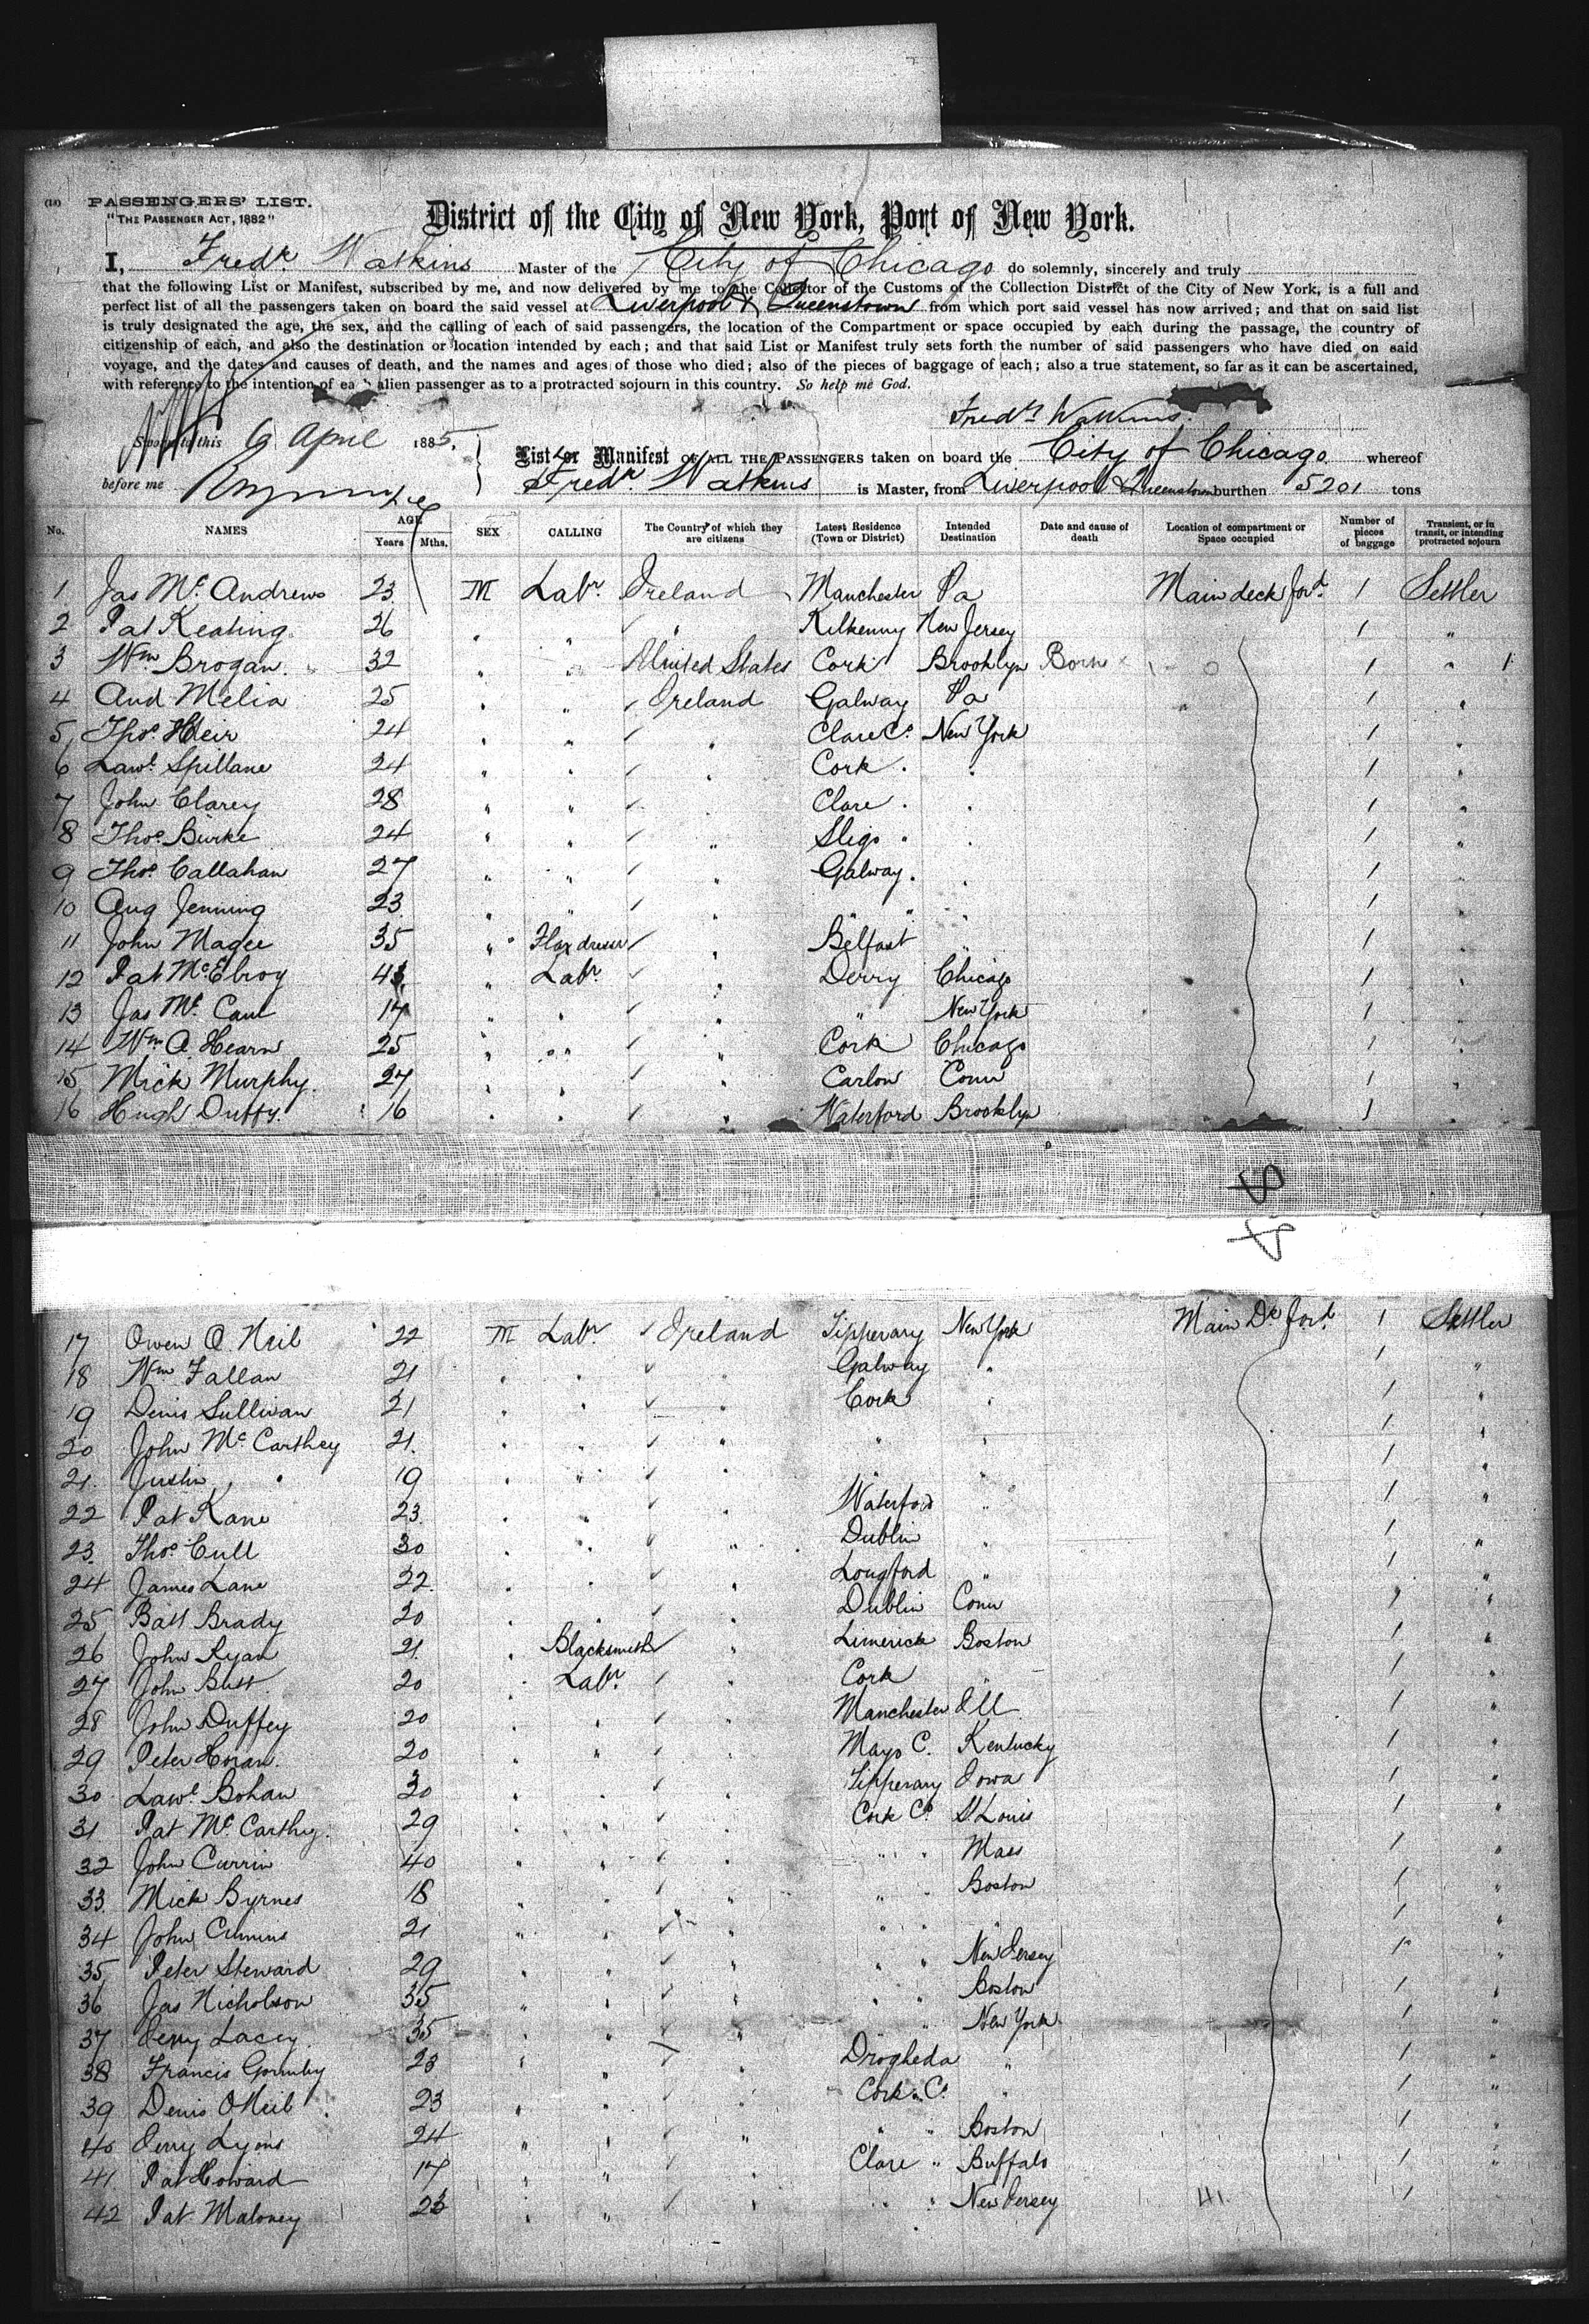 (18) PASSENGERS' LIST.
"THE PASSENGER ACT, 1882"
District of the City of New York, Port of New York.
I, Fredk. Watkins Master of the City of Chicago do solemnly, sincerely and truly
that the following List or Manifest, subscribed by me, and now delivered by me to the Collector of the Customs of the Collection District of the City of New York, is a full and
perfect list of all the passengers taken on board the said vessel at Liverpool & Queenstown from which port said vessel has now arrived; and that on said list
is truly designated the age, the sex, and the calling of each of said passengers, the location of the Compartment or space occupied by each during the passage, the country of
citizenship of each, and also the destination or location intended by each; and that said List or Manifest truly sets forth the number of said passengers who have died on said
voyage, and the dates and causes of death, and the names and ages of those who died; also of the pieces of baggage of each; also a true statement, so far as it can be ascertained,
with reference to the intention of ea alien passenger as to a protracted sojourn in this country. So help me God.
Fredk Watkins.
Sworn to this 6 April 1885,
before me
List or Manifest OF ALL THE PASSENGERS taken on board the City of Chicago whereof
Fredk. Watkins is Master, from Liverpool & Queenstown burthen 5201 tons
No. NAMES AGE Years Mths. SEX CALLING The Country of which they are citizens Latest Residence (Town or District) Intended Destination Date and cause of death Location of compartment or Space occupied Number of pieces of baggage Transient, or in transit, or intending protracted sojourn
1 Jas Mc Andrews 23 M Labr Ireland Manchester Pa Main deck ford. 1 Settler
2 Pat Keating 26 " " " Kilkenny New Jersey 1 "
3 Wm Brogan 32 " " United States Cork Brooklyn Born 1 " 1
4 And Melia 25 " " Ireland Galway Pa 1 "
5 Thos. Heir 24 " " " Clare Co. New York 1 "
6 Lawc. Spillane 24 " " " Cork " " 1 "
7 John Clarey 28 " " " Clare " " 1 "
8 Thos. Burke 24 " " " Sligo " " 1 "
9 Thos. Callahan 27 " " " Galway " " 1 "
10 Aug Jenning 23 " " " " " " 1 "
11 John Magee 35 " Flax dresser " Belfast " 1 "
12 Pat McElroy 43 " Labr. " Derry Chicago 1 "
13 Jas Mc Caul 17 " " " " New York 1 "
14 Wm O. Hearn 25 " " " Cork Chicago 1 "
15 Mick Murphy. 27 " " " Carlow Conn 1 "
16 Hugh Duffy. 16 " " " Waterford Brooklyn 1 "
48
17 Owen O. Neil 22 M Labr Ireland Tipperary New York Main Dk ford. 1 Settler
18 Wm Fallan 21 " " " Galway " 1 "
19 Denis Sullivan 21 " " " Cork " 1 "
20 John Mc Carthey 21. " " " " " 1 "
21. Justin " 19 " " " " " 1 "
22 Pat Kane 23. " " " Waterford " 1 "
23. Thos. Cull 30 " " " Dublin " 1 "
24 James Lane 22. " " " Longford " 1 "
25 Batt Brady 20 " " " Dublin Conn 1 "
26 John Ryan 21. " Blacksmith " Limerick Boston 1 "
27 John Butt. 20 " Labr. " Cork " 1 "
28 John Duffey 20 " " " Manchester Ill 1 "
29 Peter Horan. 20 " " " Mayo C. Kentucky 1 "
30. Lawc. Bohan 30 " " " Tipperary Iowa 1 "
31. Pat Mc. Carthy. 29 " " " Cork Co. St. Louis 1 "
32 John Currin 40 " " " " " Mass 1 "
33. Mick Byrnes 18 " " " " " Boston 1 "
34 John Cimins 21 " " " " " " 1 "
35 Peter Steward 29 " " " " " New Jersey 1 "
36 Jas Nicholson 35 " " " " " Boston 1 "
37 Jerry Lacey. 35 " " " " New York 1 "
38 Francis Gormley 23 " " " Drogheda " 1 "
39 Denis O'Neil 23 " " " Cork. C. " 1 "
40 Jerry Lyons 24 " " " " " Boston 1 "
41. Pat Howard 17 " " " Clare " Buffalo 1 "
42 Pat Maloney 23 " " " " " New Jersey 41. 1 "